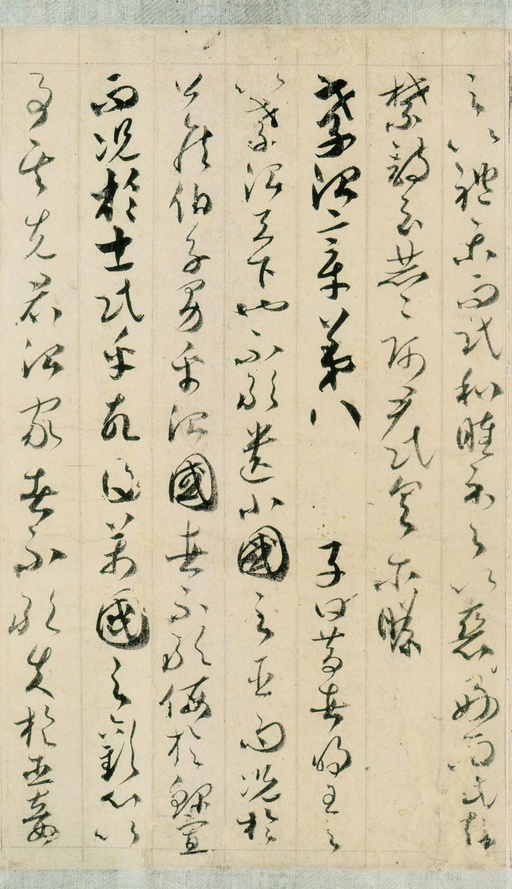 之以禮樂而民和睦示之以惡好而民知
禁詩云赫〻師尹民具爾瞻
孝治章第八　子曰昔者明王之
以孝治天下也不敢遺小國之臣而況於
公侯伯子男乎治國者不敢侮於鰥寡
而況於士民乎故得萬國之歡心以
事其先君治家者不敢失於臣妾